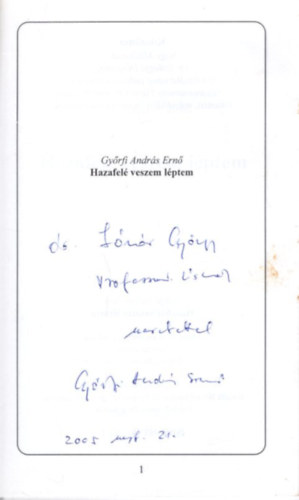 Győrfi András Ernő
Hazafelé veszem léptem
dr. György
Professzor Úrnak
szeretettel
Győrfi András Ernő
2005 21.
1